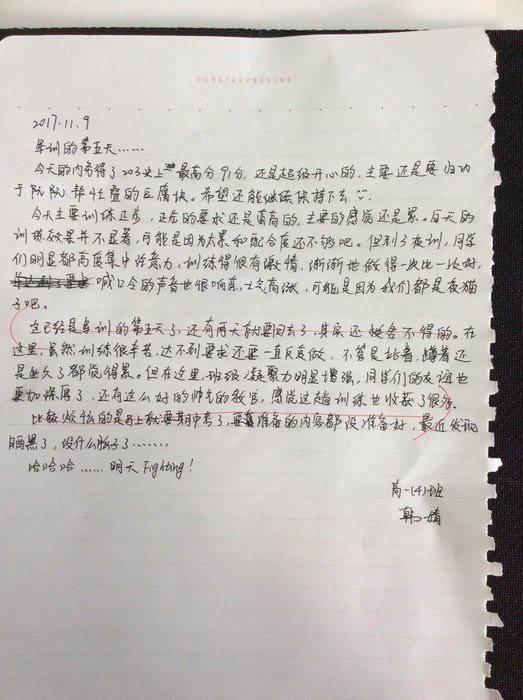 OURSTORYBEGINS
2017.11.9
军训的第五天……
今天的内务得了203史上最高分91分,还是超级开心的,主要还是要归功
于队队帮忙叠的豆腐块。希望还能继续保持下去
今天主要训练正步,正步的要求还是蛮高的,主要的感觉还是累。白天的
训练效果并不显著,可能是因为太累和配合度还不够吧。但到了夜训,同学
们明显都高度集中注意力,训练得很有激情,渐渐地做得一次比一次好,
喊口令的声音也很响亮,士气高涨,可能是因为我们都是夜猫
子吧。
这已经是军训的第五天了,还有两天就要回去了,其实还挺舍不得的。在
这里,虽然训练很辛苦,达不到要求还要一直反复做,不管是站着,蹲着还
是坐久了都觉得累。但在这里,班级凝聚力明显增强,同学们的友谊也
更加深厚了,还有这么好的帅气的教官,感觉这趟训练也收获了很多。
比较烦恼的是马上就要期中考了,要准备的内容都没准备好,最近发现
晒黑了,没什么脸了……
哈哈哈……明天Fighting!
高一(4)班
韩婧